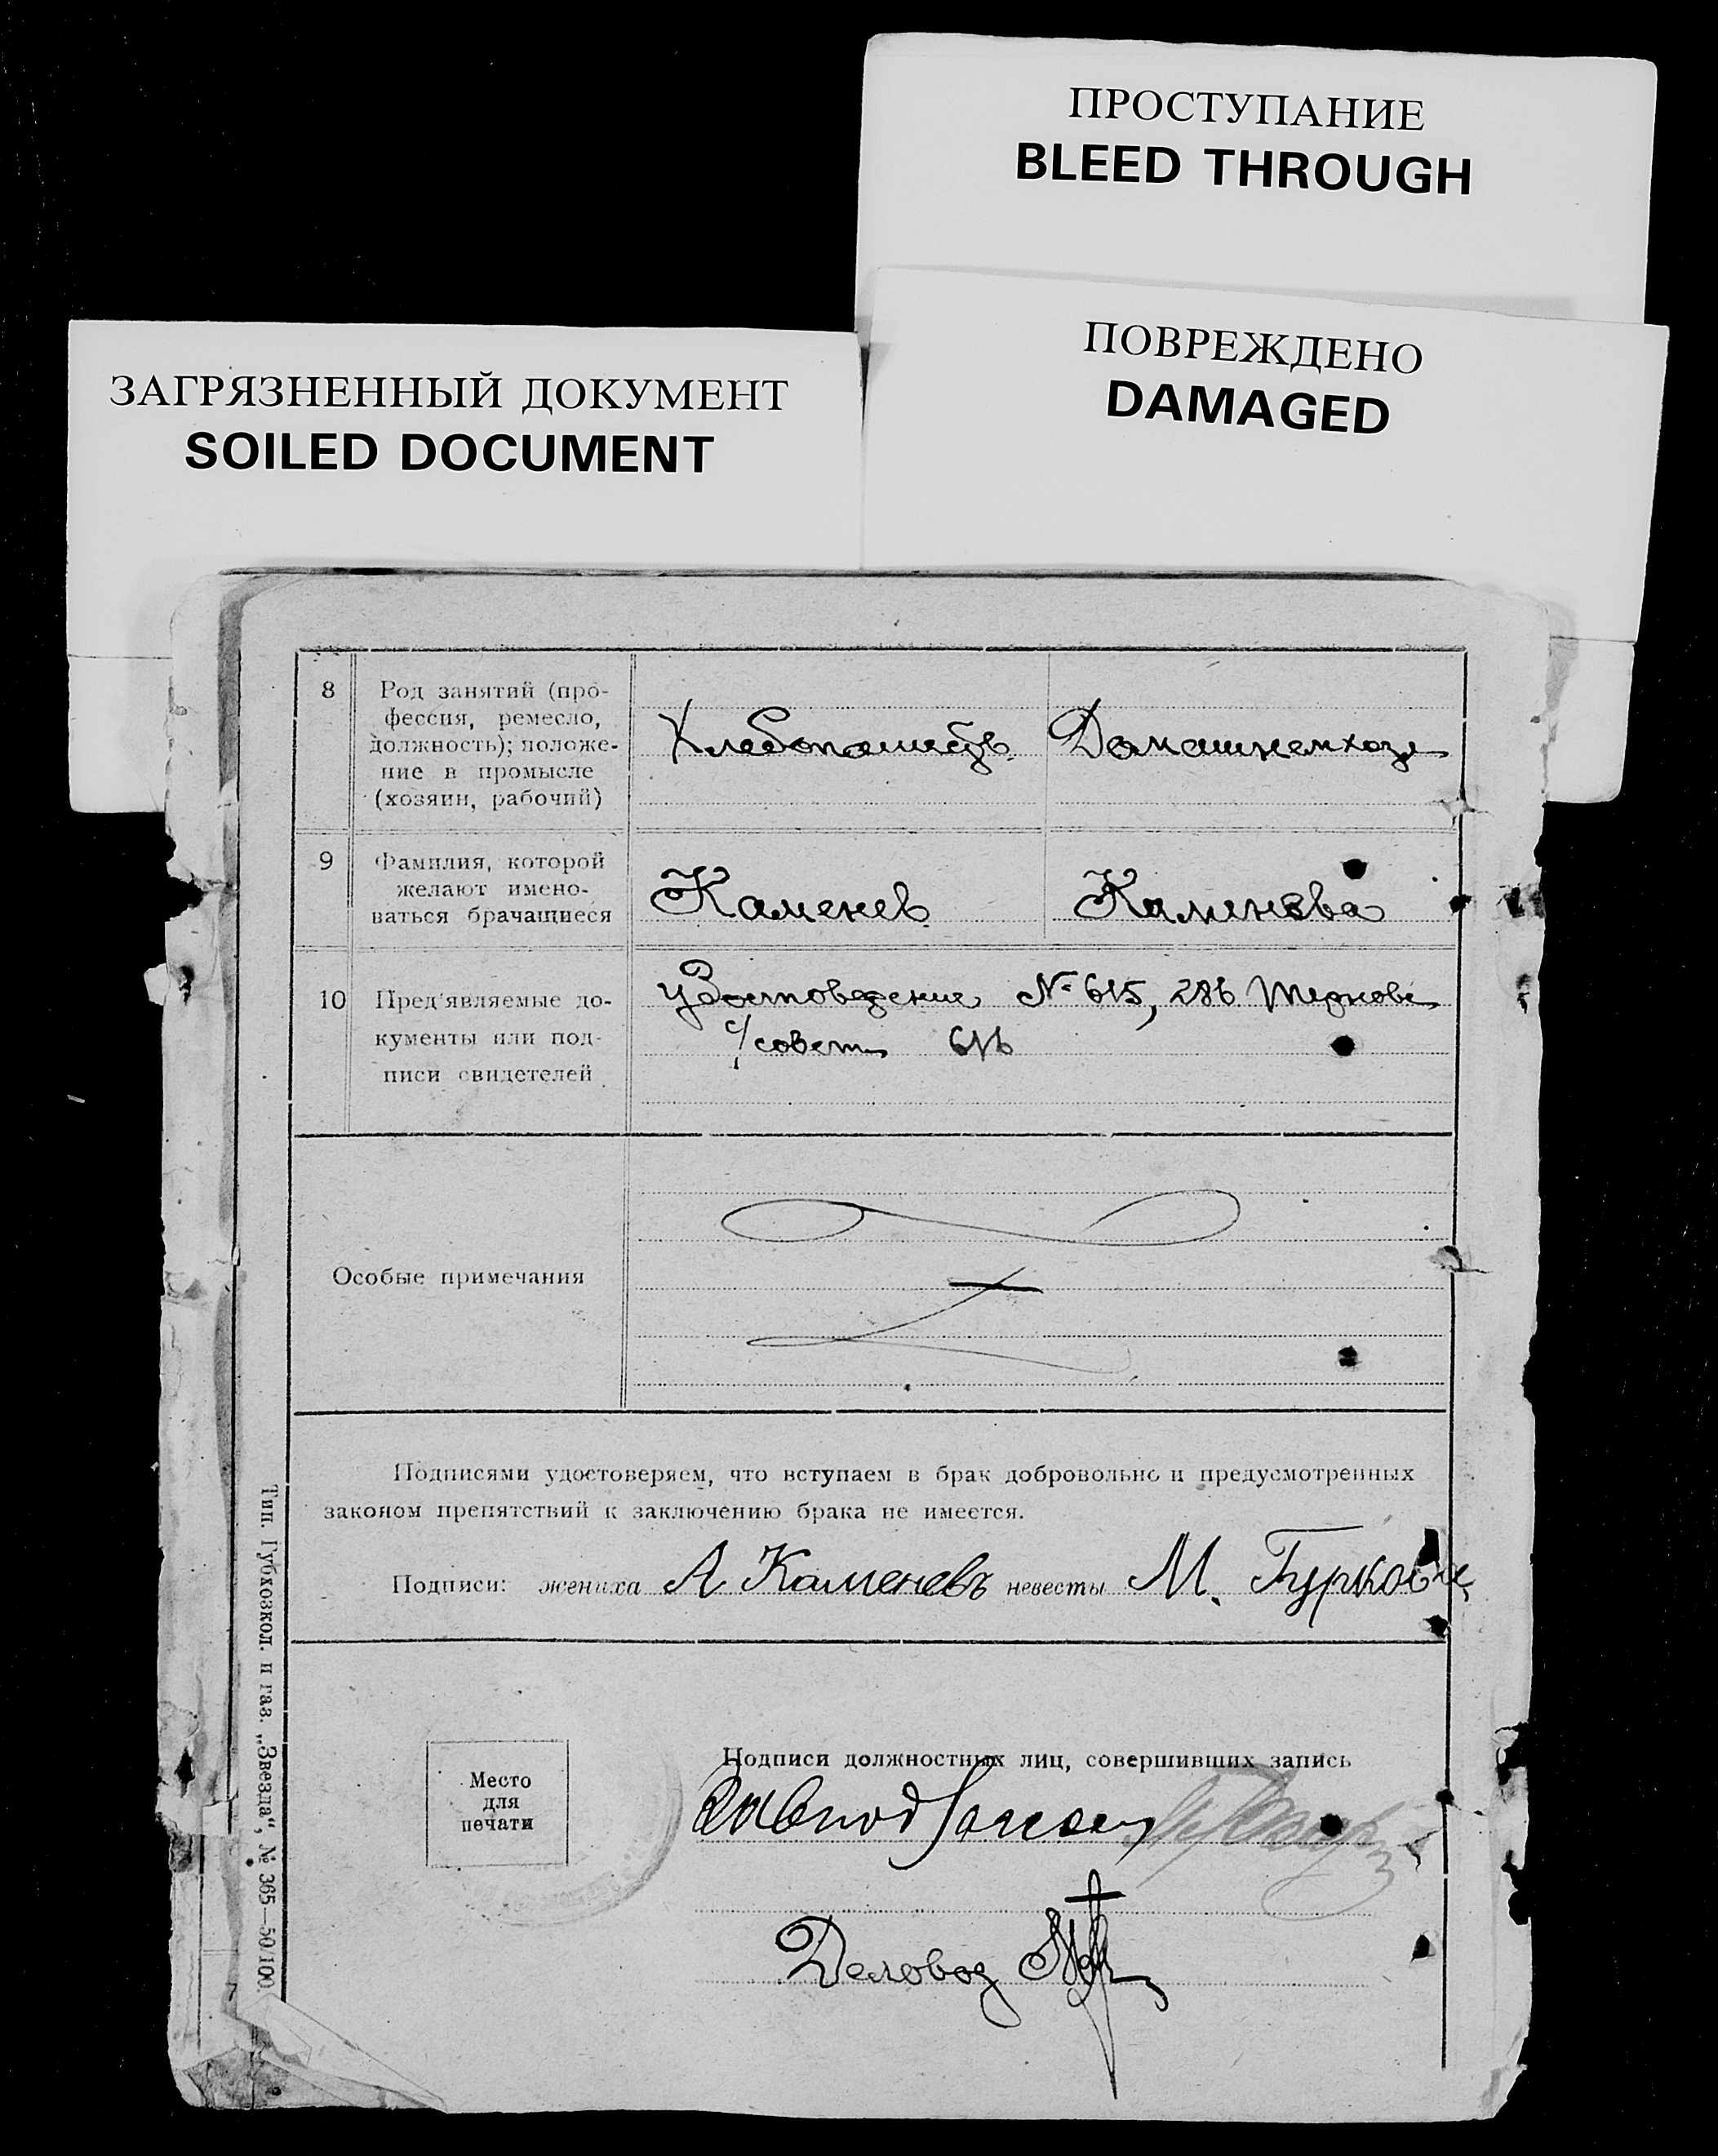 ПРОСТУПАНИЕ
BLEED THROUGH
ПОВРЕЖДЕНО
DAMAGED
ЗАГРЯЗНЕННЫЙ ДОКУМЕНТ
SOILED DOCUMENT
8
Род занятий (про-
фессия, ремесло,
должность); положе-
ние в промысле
(хозяин, рабочий)
Хлебопашест
Домашнем хозя
9
Фамилия, которой
желают имено-
ваться брачащиеся
Каменев
Каменева
10
Пред'являемые до-
кументы или под-
писи свидетелей
Удостоверение № 615, 286
с/совет 616
Особые примечания
Подписями удостоверяем, что вступаем в брак добровольно и предусмотренных
законом препятствий к заключению брака не имеется.
Подписи: жениха А Каменевъ невесты М.
Место
для
печати
Подписи должностных лиц, совершивших запись
Деловод
Тип. Губисполк. и газ. „Звезда“, № 365—50/100.